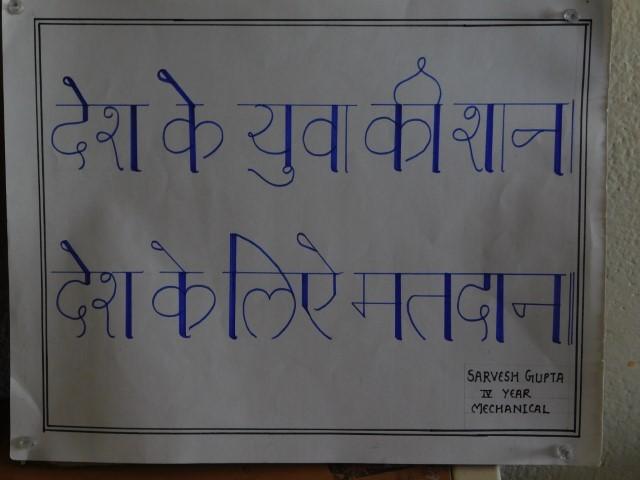 देश के युवा की शान।
देश के लिऐ मतदान॥
SARVESH GUPTA
IV YEAR
MECHANICAL